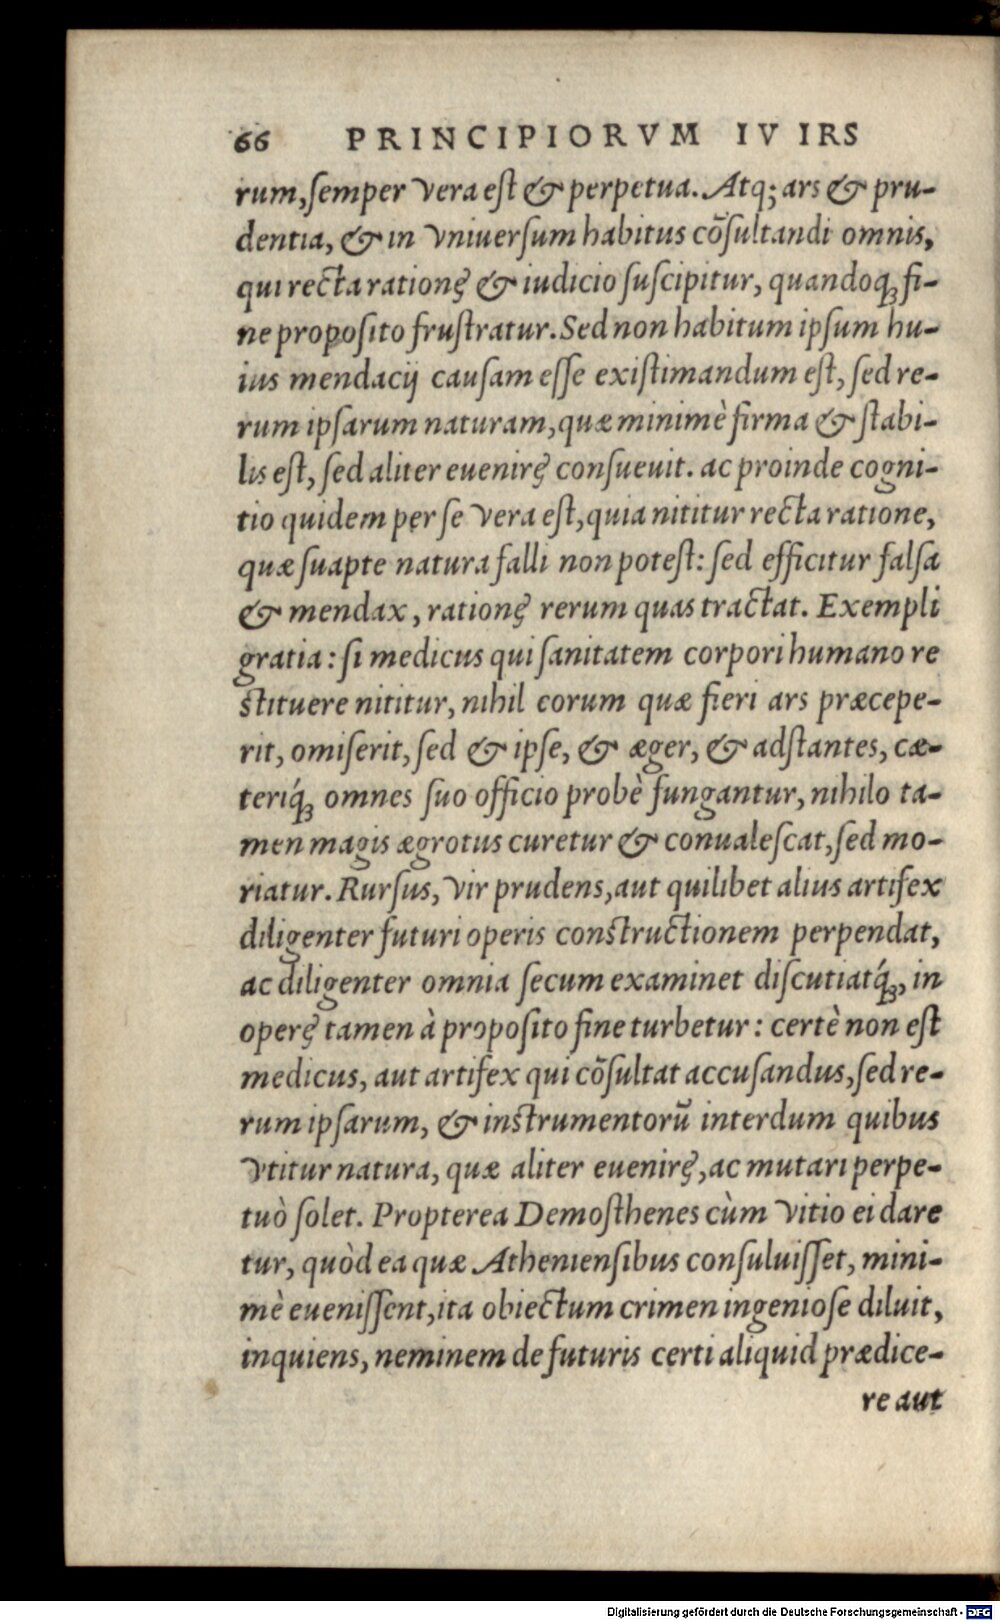 66 PRINCIPIORVM IV IRS
rum, ſemper vera eſt & perpetua. Atq; ars & pru-
dentia, & in vniuerſum habitus cōſultandi omnis,
qui recta rationę & iudicio ſuſcipitur, quandoq; fi-
ne propoſito fruſtratur. Sed non habitum ipſum hu-
ius mendacij cauſam eſſe exiſtimandum eſt, ſed re-
rum ipſarum naturam, quæ minimè firma & ſtabi-
lis eſt, ſed aliter euenirę conſueuit. ac proinde cogni-
tio quidem per ſe vera eſt, quia nititur recta ratione,
quæ ſuapte natura falli non poteſt: ſed efficitur falſa
& mendax, rationę rerum quas tractat. Exempli
gratia: ſi medicus qui ſanitatem corpori humano re
ſtituere nititur, nihil eorum quæ fieri ars præcepe-
rit, omiſerit, ſed & ipſe, & æger, & adſtantes, cæ-
teriq́; omnes ſuo officio probè fungantur, nihilo ta-
men magis ægrotus curetur & conualeſcat, ſed mo-
riatur. Rurſus, vir prudens, aut quilibet alius artifex
diligenter futuri operis conſtructionem perpendat,
ac diligenter omnia ſecum examinet diſcutiatq́;, in
operę tamen à propoſito fine turbetur: certè non eſt
medicus, aut artifex qui cōſultat accuſandus, ſed re-
rum ipſarum, & inſtrumentorū interdum quibus
vtitur natura, quæ aliter euenirę, ac mutari perpe-
tuò ſolet. Propterea Demoſthenes cùm vitio ei dare
tur, quòd ea quæ Athenienſibus conſuluiſſet, mini-
mè eueniſſent, ita obiectum crimen ingenioſe diluit,
inquiens, neminem de futuris certi aliquid prædice-
re aut
Digitalisierung gefördert durch die Deutsche Forschungsgemeinschaft - DFG